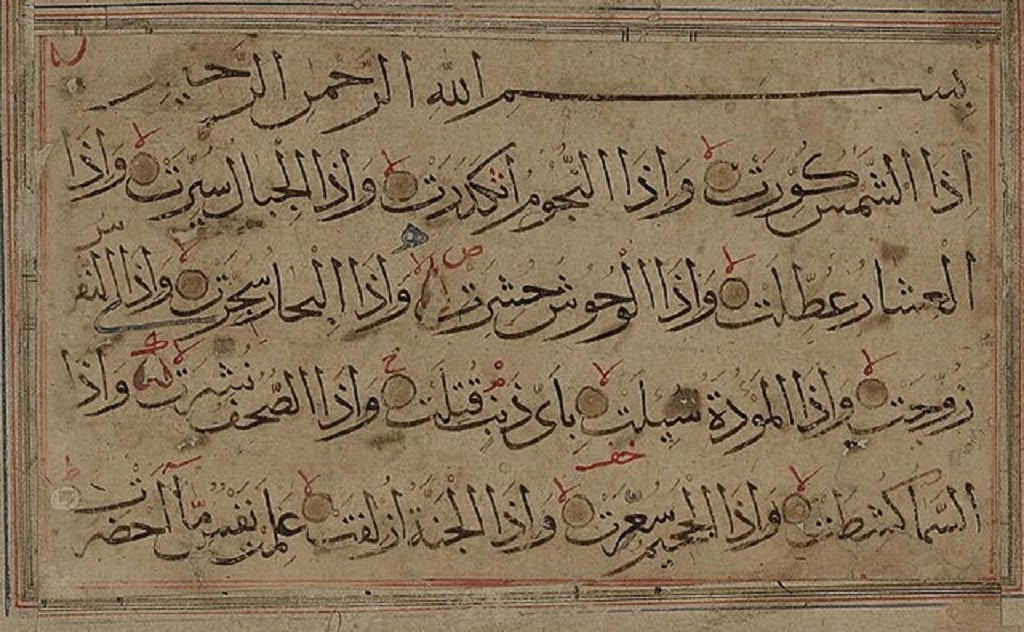 بسم الله الرحمن الرحيم
اذا الشمس كورت واذا النجوم انكدرت واذا الجبال سيرت واذا
العشار عطلت واذا الوحوش حشرت واذا البحار سجرت واذا النفوس
زوجت واذا الموءدة سئلت باى ذنب قتلت واذا الصحف نشرت واذا
السما كشطت واذا الجحيم سعرت واذا الجنة ازلفت علمت نفس ما احضرت